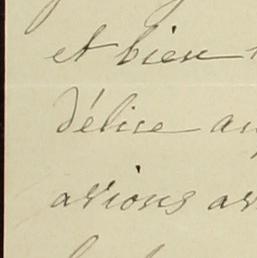 et bien
délice au
avions av